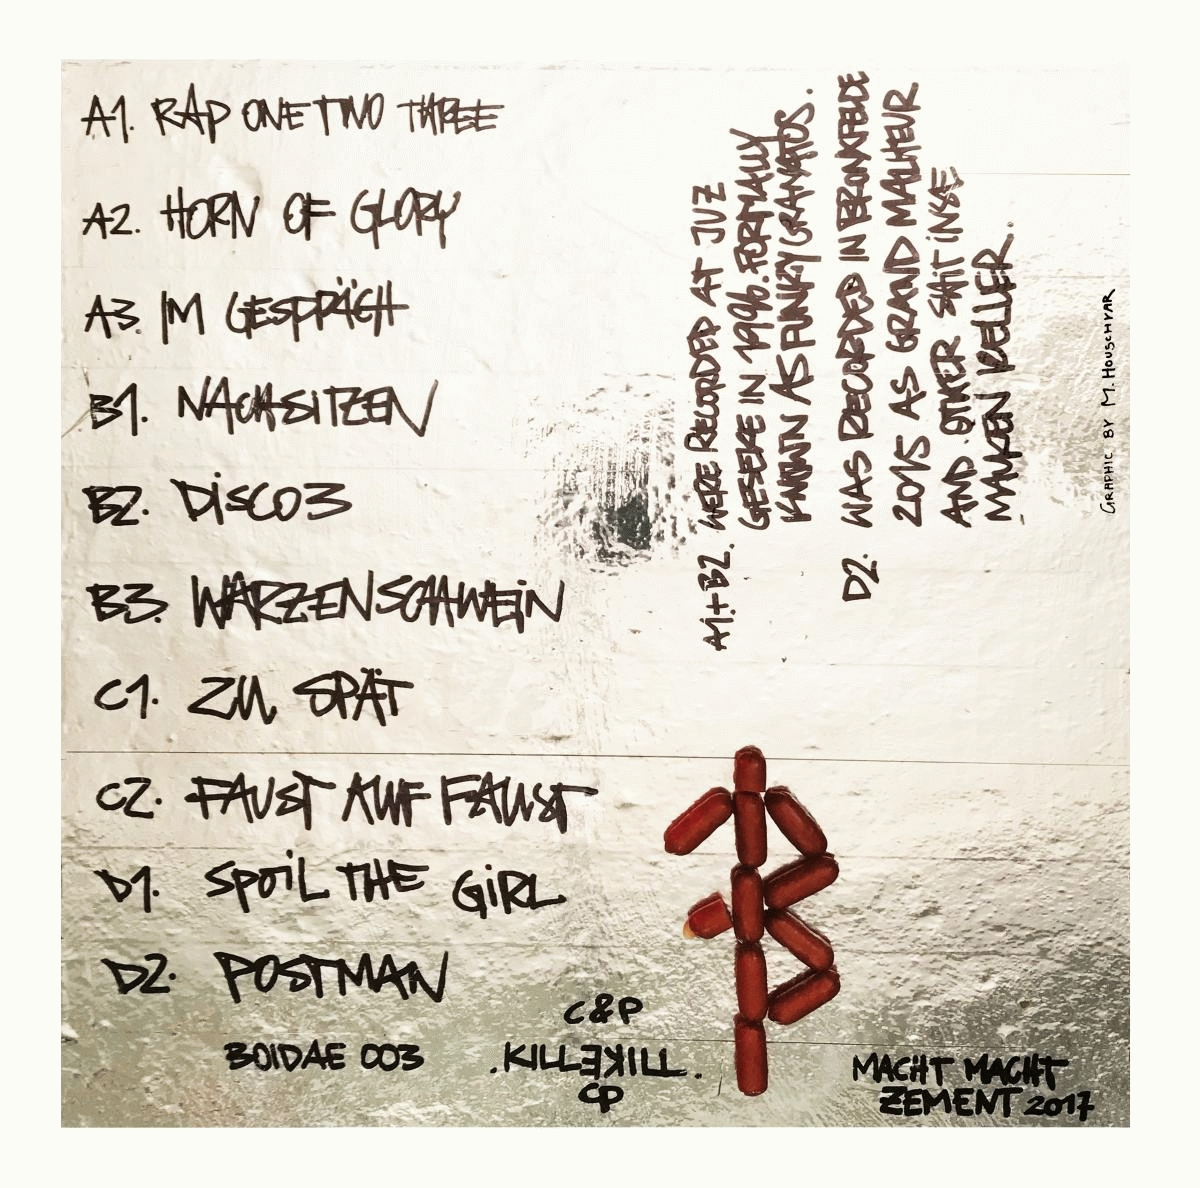 A1. RAP ONE TWO THREE
A2. HORN OF GLORY
A3. IM GESPRÄCH
B1. NACHSITZEN
B2. DISCO3
B3. WARZENSCHWEIN
C1. ZU SPÄT
C2. FAUST AUF FAUST
D1. SPOIL THE GIRL
D2. POSTMAN
BOIDAE 003
C&P
.KILLEKILL.
CP
A1+B2. WERE RECORDED AT JUZ
GESEKE IN 1996. FORMALLY
KNOWN AS FUNKY GRANATOS.
D2. WAS RECORDED IN BRONXFELDE
2015 AS GRAND MALHEUR
AND OTHER SHIT INSE
MANKEN KELLER.
GRAPHIC BY M. HOUSCHYAR
MACHT MACHT
ZEMENT 2017